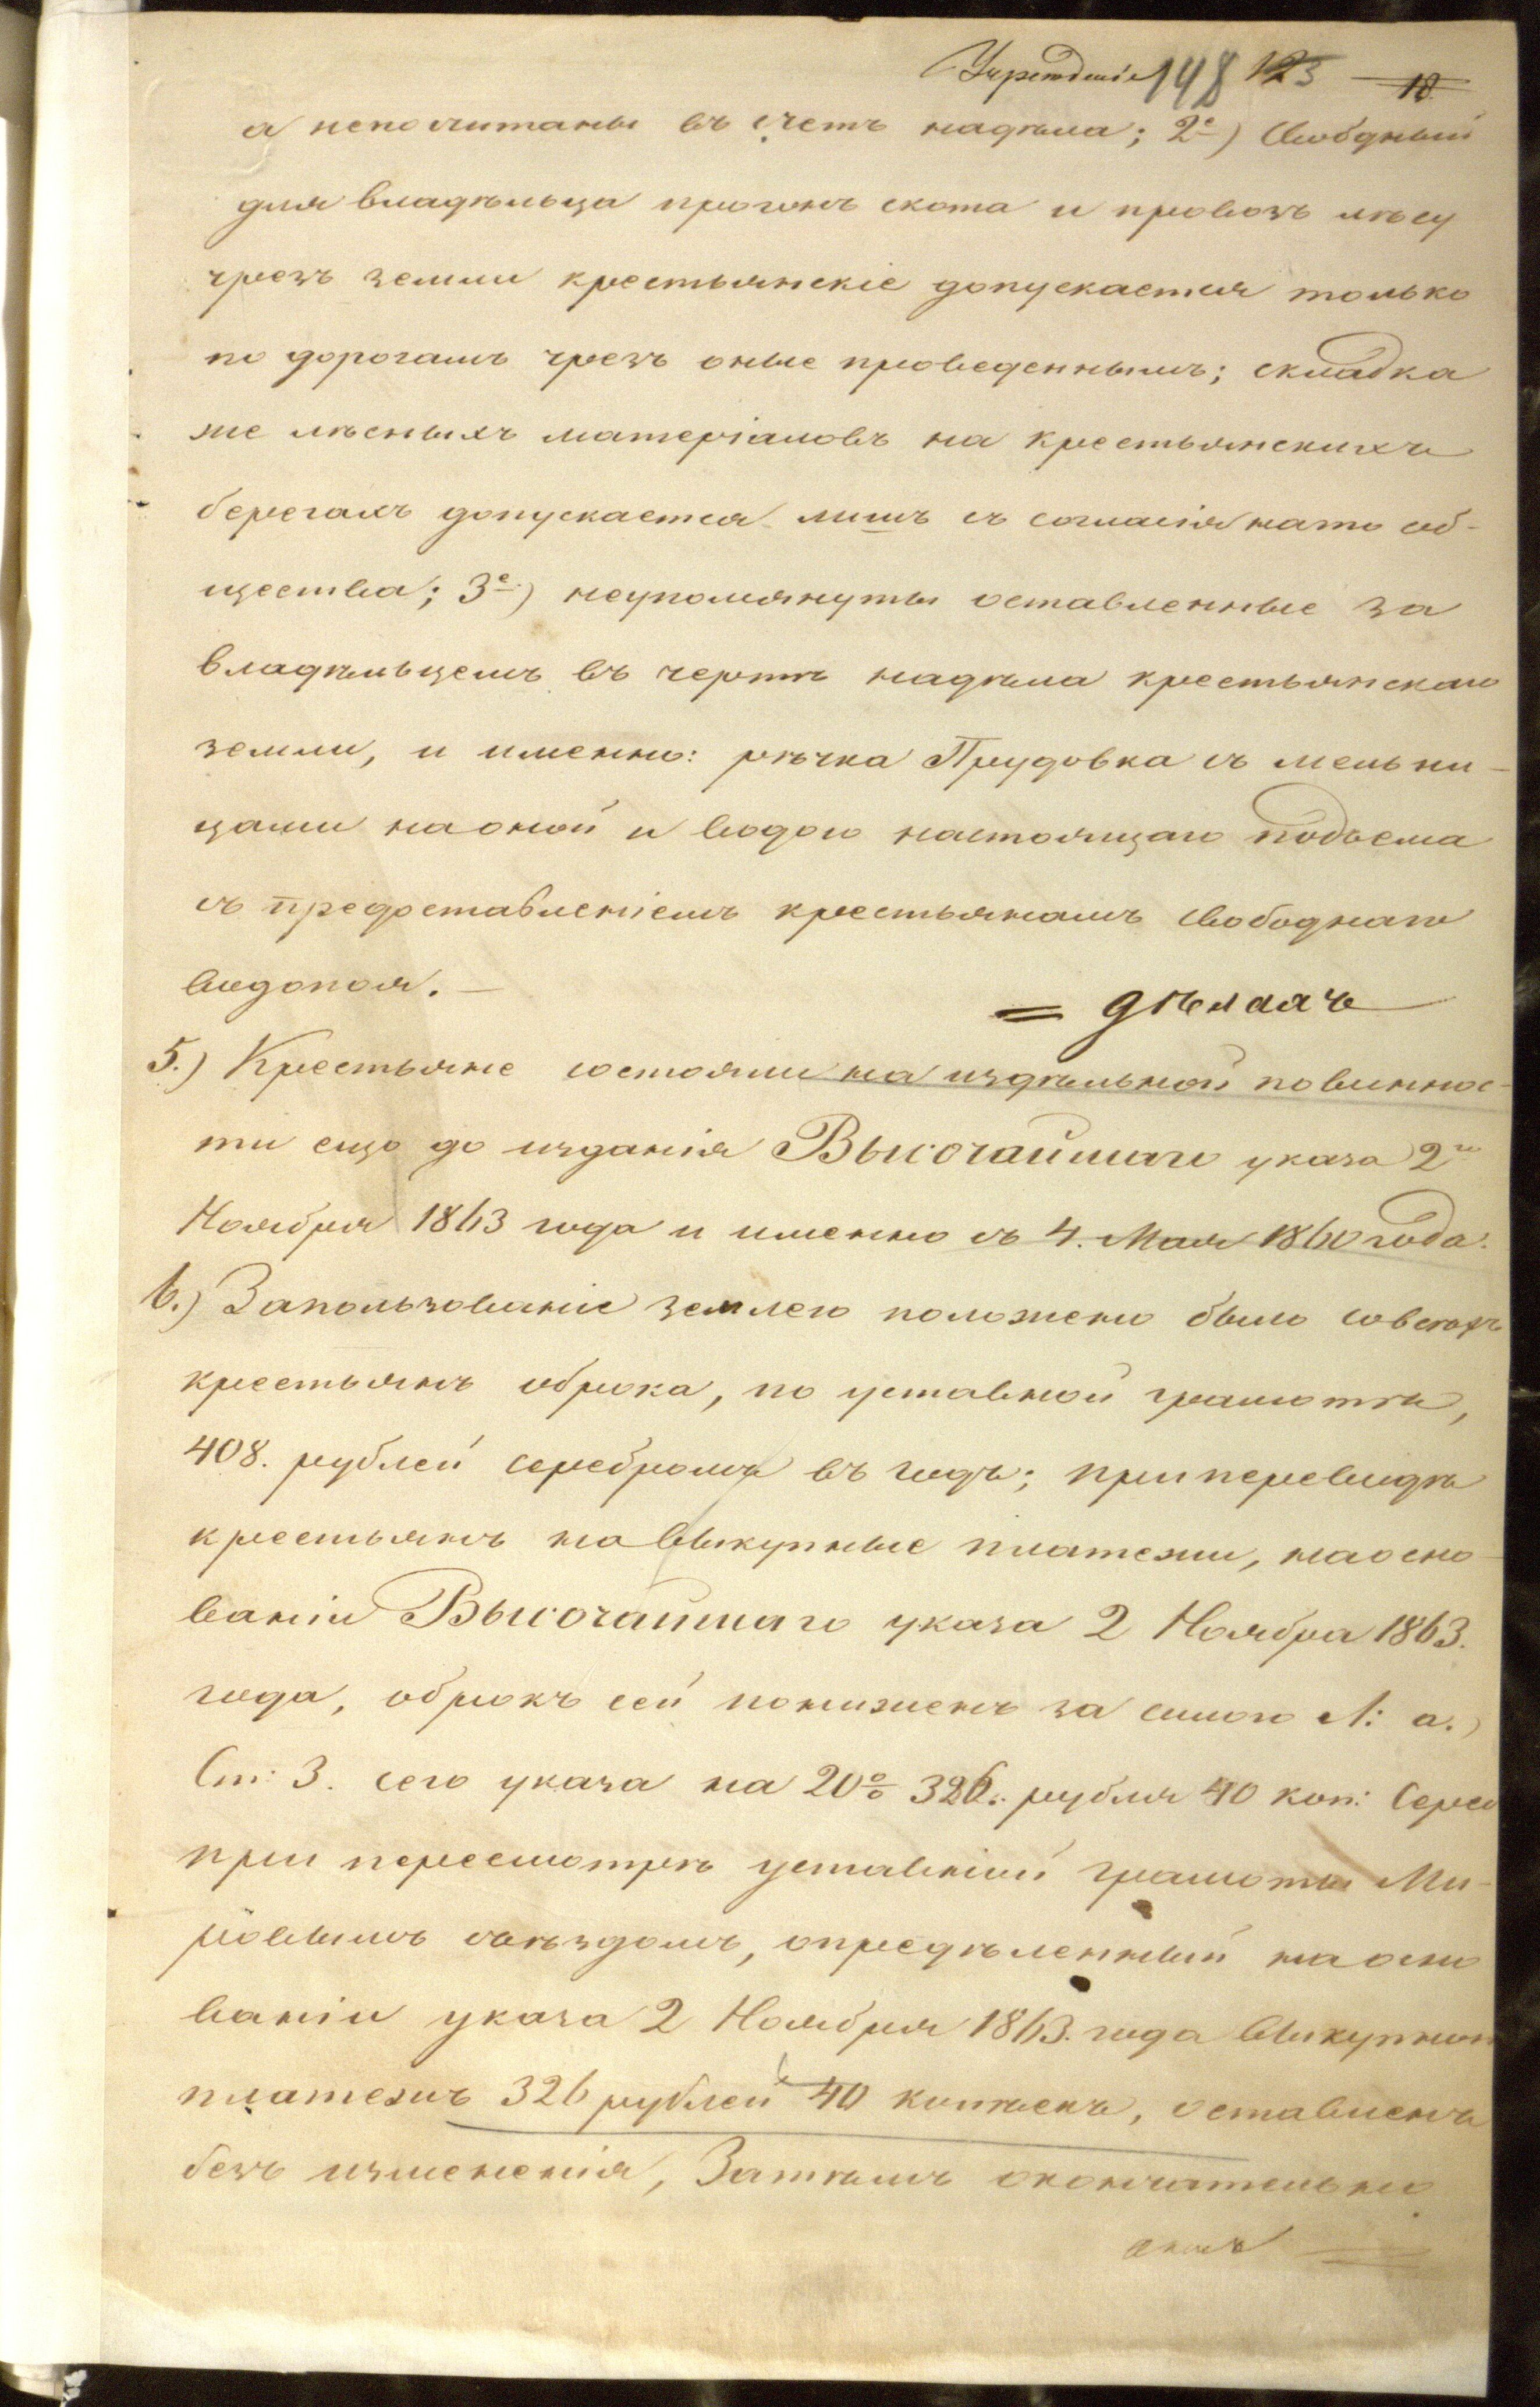 Учрежденіе 148 123 18.
а непочитаны въ счетъ надѣла; 2е) Свободный
для владѣльца прогонъ скота и провозъ лѣсу
чрезъ земли крестьянскіе допускается только
по дорогамъ чрезъ оные проведеннымъ; складка
же лѣсныхъ матеріаловъ на крестьянскихъ
берегахъ допускается лишъ съ согласія нато об-
щества; 3е) неупомянуты оставленные за
владѣльцемъ въ чертѣ надѣла крестьянскаго
земли, и именно: рѣчка Прудовка съ мельни-
цами на оной и водою настоящаго подъема
съ предоставленіемъ крестьянамъ свободнаго
водопоя. —
= дѣлахъ
5.) Крестьяне состояли на издѣльной повиннос-
ти ещо до изданія Высочайшаго указа 2го
Ноября 1863 года и именно съ 4. Мая 1860 года.
6.) Запользованіе землею положено было совсѣхъ
крестьянъ оброка, по уставной грамотѣ,
408. рублей серебромъ въ годъ; при переводѣ
крестьянъ на выкупные платежи, на осно-
ваніи Высочайшаго указа 2 Ноября 1863.
года, оброкъ сей пониженъ за силою Л: а.)
Ст: 3. сего указа на 20% 326. рубля 40 коп: Сереб
при пересмотрѣ уставной грамоты Ми-
ровымъ съѣздомъ, опредѣленный на осно
ваніи указа 2 Ноября 1863. года выкупной
платежъ 326 рублей 40 копѣекъ, оставленъ
безъ измѣненія, Затѣмъ окончательно